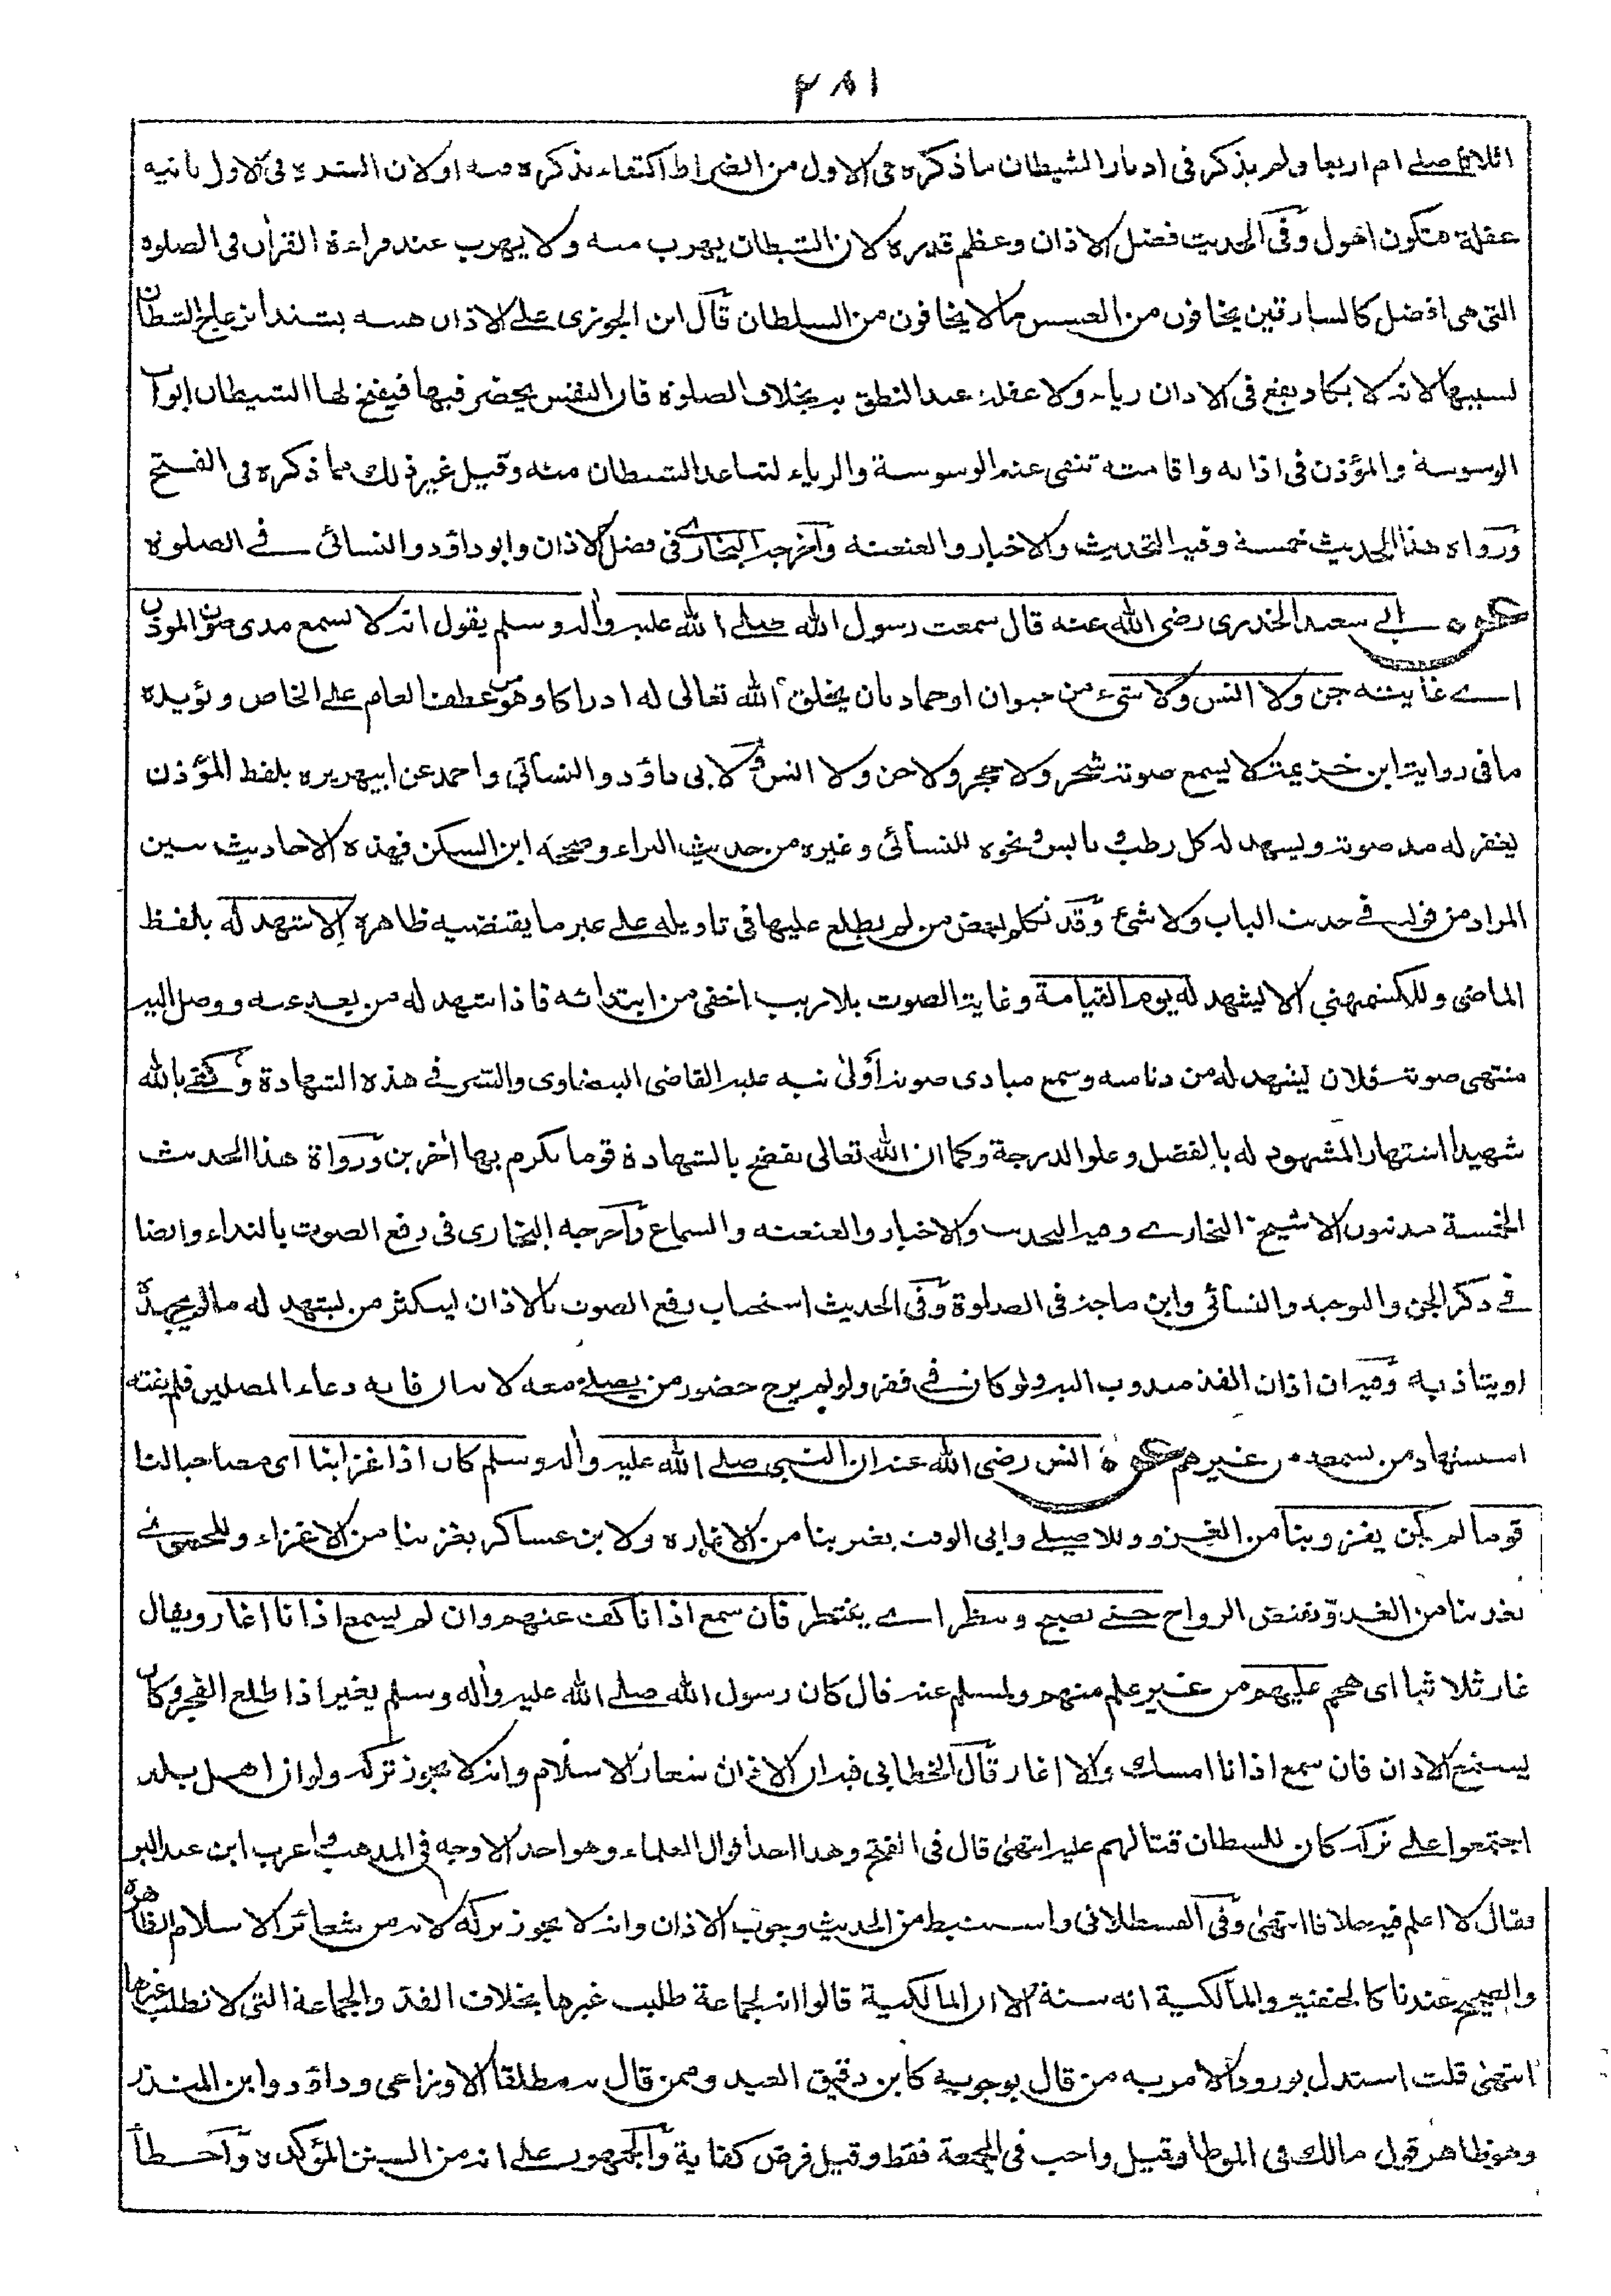 ٢٨١
اثلاثا صلى ام اربعا ولم يذكر فى ادبار الشيطان ما ذكره فى الاول من الضراط اكتفاء بذكره فيه او لان الشدة فى الاول تاتيه
غفلة فتكون اهول وفى الحديث فضل الاذان وعظم قدره لان الشيطان يهرب منه ولا يهرب عند قراءة القرأن فى الصلوة
التى هى افضل كالسارقين يخافون من العسس ما لا يخافون من السلطان قال ابن الجوزى على الاذان هيبة يشتد انزعاج الشيطان
لسببها لانه لا يكاد يقع فى الاذان رياء ولا غفلة عند النطق به بخلاف الصلوة فان النفس يحضر فيها فيفتح لها الشيطان ابواب
الوسوسة والمؤذن فى اذانه واقامته تنفى عنه الوسوسة والرياء لتباعد الشيطان منه وقيل غير ذلك مما ذكره فى الفتح
ورواة هذا الحديث خمسة وفيه التحديث والاخبار والعنعنة وأخرجه البخارى فى فضل الاذان وابو داؤد والنسائى فى الصلوة
ابى سعيد الخدرى رضى الله عنه قال سمعت رسول الله صلى الله عليه وأله وسلم يقول انه لا يسمع مدى صوت المؤذن
اى غايته جن ولا انس ولا شىء من حيوان او جماد بان يخلق الله تعالى له ادراكا وهو من عطف العام على الخاص ويؤيده
ما فى رواية ابن خزيمة لا يسمع صوته شجر ولا حجر ولا جن ولا انس ولابى داؤد والنسائى واحمد عن ابيهريره بلفظ المؤذن
يغفر له مد صوته ويشهد له كل رطب ويابس ونحوه للنسائى وغيره من حديث البراء وصححه ابن السكن فهذه الاحاديث تبين
المراد من قوله فى حديث الباب ولا شئ وقد تكلم بعض من لم يطلع عليها فى تاويله على غير ما يقتضيه ظاهره الا شهد له بلفظ
الماضى وللكشميهنى الا يشهد له يوم القيامة وغاية الصوت بلا ريب اخفى من ابتدائه فاذا شهد له من بعد عنه ووصل اليه
منتهى صوته فلان يشهد له من دنا منه وسمع مبادى صوته أولى نبه عليه القاضى البيضاوى والسر فى هذه الشهادة وكفى بالله
شهيدا اشتهار المشهود له بالفضل وعلو الدرجة وكما ان الله تعالى يفضح بالشهادة قوما يكرم بها أخرين ورواة هذا الحديث
الخمسة مدنيون الا شيخ البخارى وفيه التحديث والاخبار والعنعنة والسماع وأخرجه البخارى فى رفع الصوت بالنداء وايضا
فى ذكر الجن والتوحيد والنسائى وابن ماجة فى الصلوة وفى الحديث استحباب رفع الصوت بالاذان ليكثر من يشهد له ما لم يجهده
او يتاذ به وفيه ان اذان الفذ مندوب اليه ولو كان فى قفر ولو لم يرج حضور من يصلى معه لانه ان فاته دعاء المصلين فلم يفته
استشهاد من سمعه من غيرهم انس رضى الله عنه ان النبى صلى الله عليه وأله وسلم كان اذا غزا بنا اى مصاحبا لنا
قوما لم يكن يغزو بنا من الغزو وللاصيلى وابى الوقت يغير بنا من الاغارة ولابن عساكر يغز بنا من الاغزاء وللحموى
يغد بنا من الغدو نقيض الرواح حتى يصبح وينظر اى ينتظر فان سمع اذانا كف عنهم وان لم يسمع اذانا اغار ويقال
غار ثلاثيا اى هجم عليهم من غير علم منهم ولمسلم عنه قال كان رسول الله صلى الله عليه وأله وسلم يغير اذا طلع الفجر وكان
يستمع الاذان فان سمع اذانا امسك والا اغار قال الخطابى فيه ان الاذان شعار الاسلام وانه لا يجوز تركه ولو ان اهل بلد
اجتمعوا على تركه كان للسطان قتالهم عليه انتهى قال فى الفتح وهذا احد اقوال العلماء وهو احد الاوجه فى المذهب واغرب ابن عبد البر
فقال لا اعلم فيه خلافا انتهى وفى القسطلانى واستنبط من الحديث وجوب الاذان وانه لا يجوز تركه لانه من شعائر الاسلام الظاهرة
والصحيح عندنا كالحنفية والمالكية انه سنة الا ان المالكية قالوا انه لجماعة طلبت غيرها بخلاف الفذ والجماعة التى لا تطلب غيرها
انتهى قلت استدل بورود الامر به من قال بوجوبه كابن دقيق العيد وممن قال به مطلقا الاوزاعى وداؤد وابن المنذر
وهو ظاهر قول مالك فى الموطا وقيل واجب فى الجمعة فقط وقيل فرض كفاية والجمهور على انه من السنن المؤكدة وأخطأ